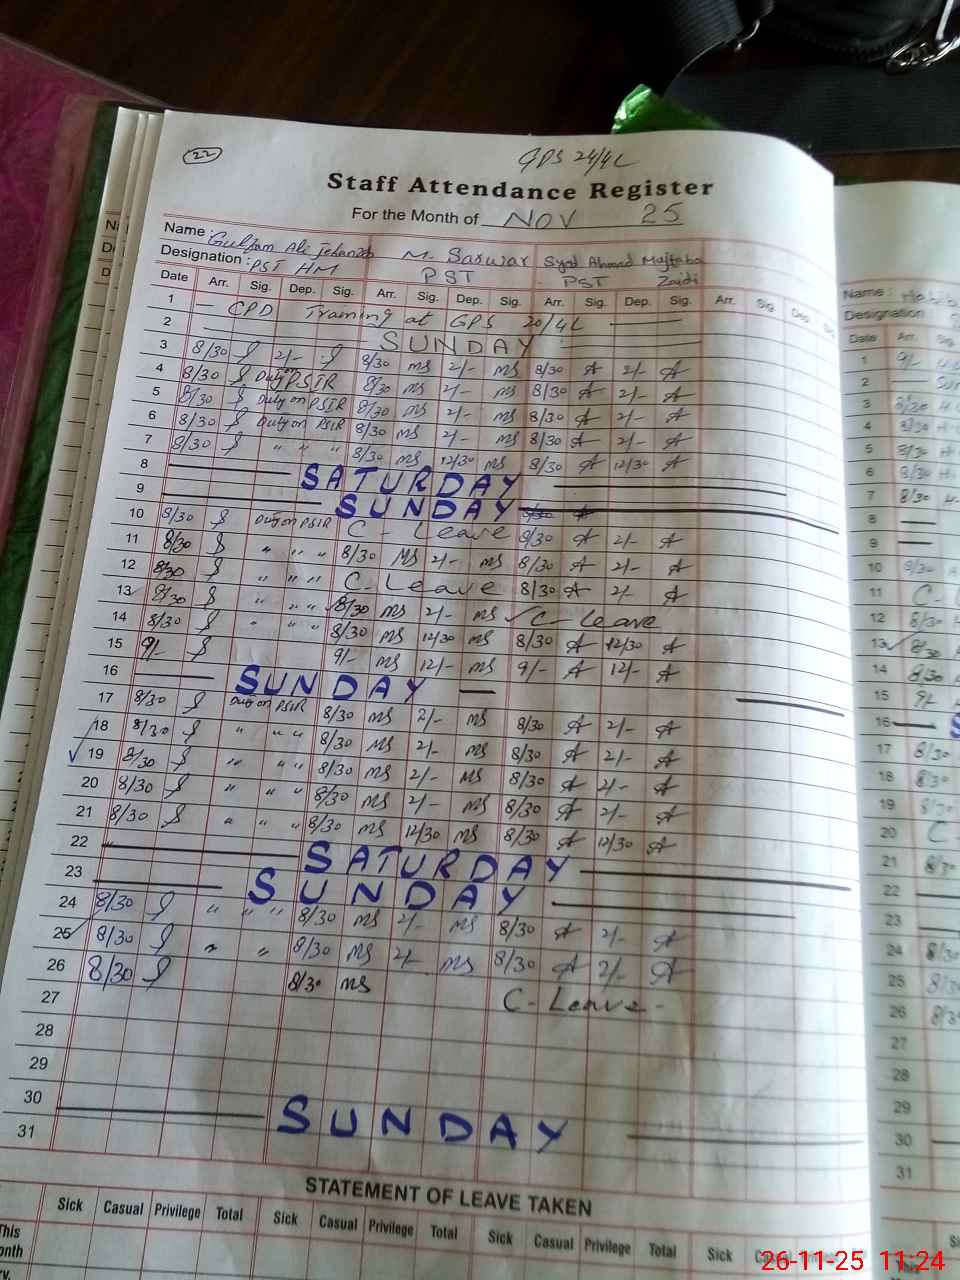 22
GPS 24/4L
Staff Attendance Register
For the Month of NOV 25
Name: Gulfam Ali M. Sarwar Syed Ahmad Mujtaba
Designation: PST HM PST PST Zaidi
Date Arr. Sig. Dep. Sig. Arr. Sig. Dep. Sig. Arr. Sig. Dep. Sig. Arr. Sig. Dep. Sig.
1 CPD Training at GPS 20/4L
2 SUNDAY
3 8/30 2/- 8/30 MS 2/- MS 8/30 A 2/- A
4 8/30 Duty on PSIR 8/30 MS 2/- MS 8/30 A 2/- A
5 8/30 Duty on PSIR 8/30 MS 2/- MS 8/30 A 2/- A
6 8/30 Duty on PSIR 8/30 MS 2/- MS 8/30 A 2/- A
7 8/30 " " " 8/30 MS 12/30 MS 8/30 A 12/30 A
8 SATURDAY
9 SUNDAY
10 8/30 Duty on PSIR C-Leave 8/30 A 2/- A
11 8/30 " " " 8/30 MS 2/- MS 8/30 A 2/- A
12 8/30 " " " C-Leave 8/30 A 2/- A
13 8/30 " " " 8/30 MS 2/- MS C-Leave
14 8/30 " " " 8/30 MS 12/30 MS 8/30 A 12/30 A
15 9/- 9/- MS 12/- MS 9/- A 12/- A
16 SUNDAY
17 8/30 Duty on PSIR 8/30 MS 2/- MS 8/30 A 2/- A
18 8/30 " " " 8/30 MS 2/- MS 8/30 A 2/- A
19 8/30 " " " 8/30 MS 2/- MS 8/30 A 2/- A
20 8/30 " " " 8/30 MS 2/- MS 8/30 A 2/- A
21 8/30 " " " 8/30 MS 12/30 MS 8/30 A 12/30 A
22 SATURDAY
23 SUNDAY
24 8/30 " " " 8/30 MS 2/- MS 8/30 A 2/- A
25 8/30 " " 8/30 MS 2/- MS 8/30 A 2/- A
26 8/30 8/30 MS C-Leave-
27
28
29
30 SUNDAY
31
STATEMENT OF LEAVE TAKEN
Sick Casual Privilege Total Sick Casual Privilege Total Sick Casual Privilege Total Sick Casual
This
Name: Habib
Designation
Date Arr.
1 9/-
2 Sun
3 8/30 H
4 8/30 H
5 8/30 H
6 8/30 H
7 8/30 H
8
9
10 9/30
11 C-
12 8/30
13 8/30
14 8/30
15 9/-
16 S
17 8/30
18 8/30
19 8/30
20 C
21 8/30
22
23
24 8/30
25 8/30
26 8/30
27
28
29
30
31
26-11-25 11:24